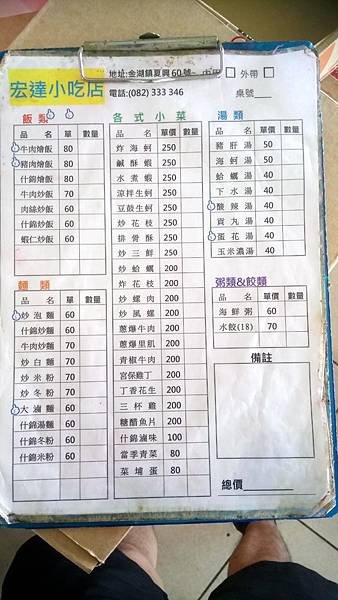 宏達小吃店
地址:金湖鎮夏興60號
外帶
電話:(082) 333 346
桌號
飯類
品 名 單 數量
牛肉燴飯 80
豬肉燴飯 80
什錦燴飯 80
牛肉炒飯 70
肉絲炒飯 60
什錦炒飯 60
蝦仁炒飯 60
麵類
品 名 單 數量
炒泡麵 60
什錦炒麵 60
牛肉炒麵 70
炒白麵 60
炒米粉 70
炒冬粉 70
大滷麵 60
什錦湯麵 60
什錦冬粉 60
什錦米粉 60
各式小菜
品 名 單價 數量
炸海蚵 250
鹹酥蝦 250
水煮蝦 250
涼拌生蚵 250
豆鼓生蚵 250
炒花枝 250
排骨酥 250
炒三鮮 250
炒蛤蠣 200
炸花枝 200
炒螺肉 200
炒風螺 200
蔥爆牛肉 200
蔥爆里肌 200
青椒牛肉 200
宮保雞丁 200
丁香花生 200
三杯雞 200
糖醋魚片 200
什錦滷味 100
當季青菜 80
菜埔蛋 80
湯類
品 名 單價 數量
豬肝湯 50
海蚵湯 50
蛤蠣湯 40
下水湯 40
酸辣湯 40
貢丸湯 40
蛋花湯 40
玉米濃湯 40
粥類&餃類
品 名 單價 數量
海鮮粥 60
水餃(18) 70
備註
總價